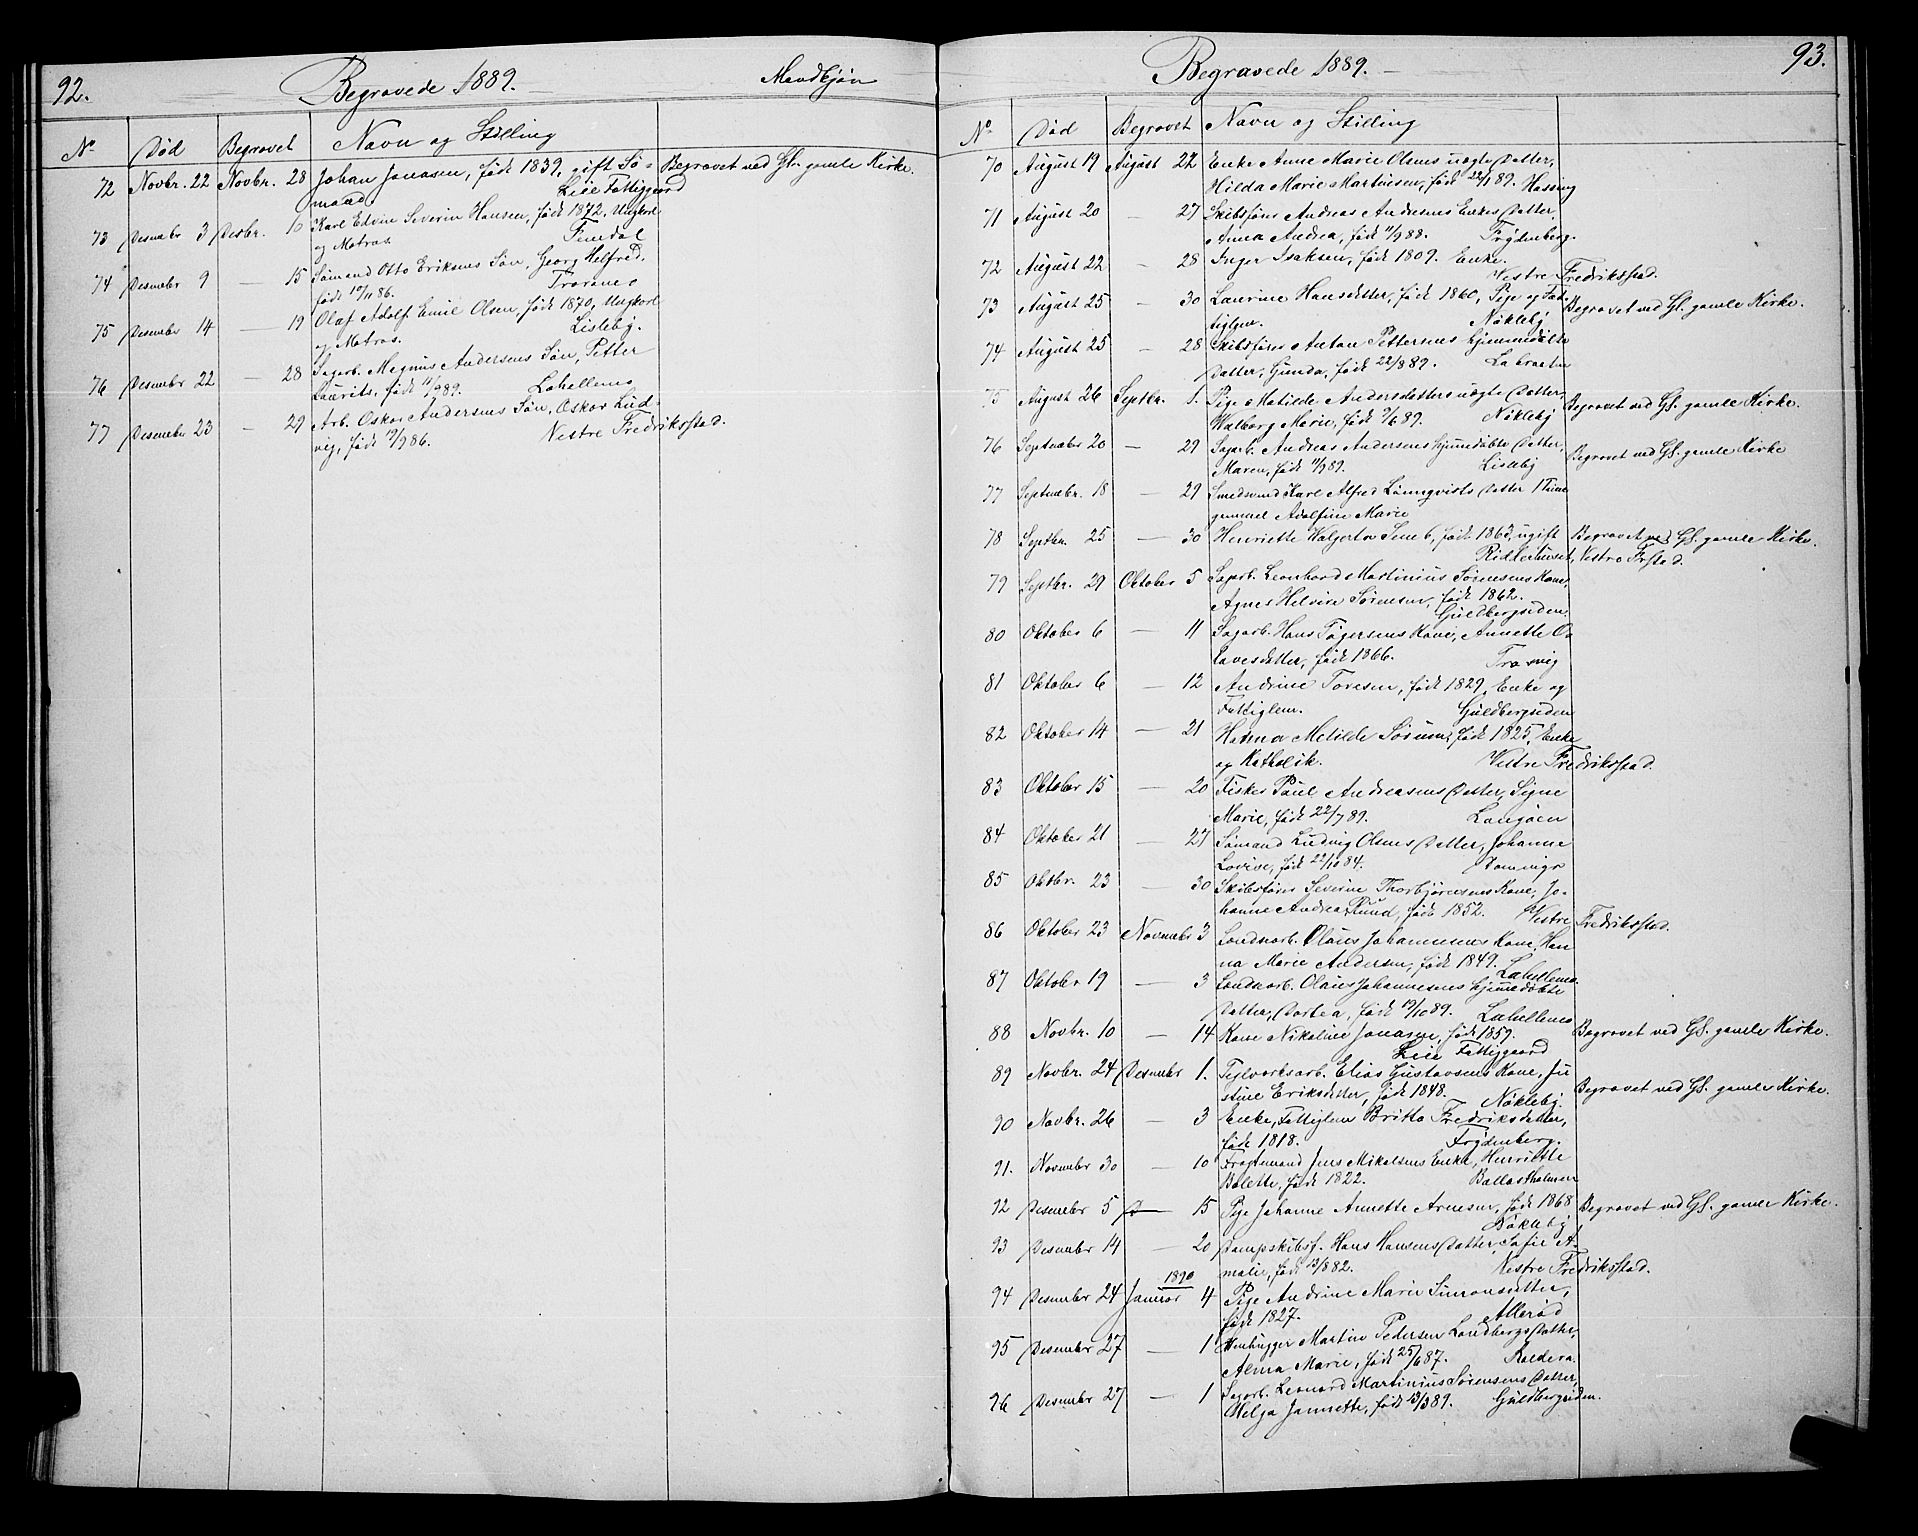 92.
Begravede 1889.
Mandkjøn
No Død Begravet Navn og Stilling
72 Novbr. 22 Novbr. 28 Johan Jonasen, født 1839, gift Sø- Begravet ved Gl. gamle Kirke.
mand. Leie Fattiggaard
73 Desember 3 Desbr. 10 Karl Edvin Severin Hansen, født 1872, Ungkarl
og Matros.
74 Desember 9 — 15 Sømand Otto Eriksens Søn, Georg Helfred,
født 10/1186. Traranes
75 Desember 14 — 19 Olaf Adolf Emil Olsen, født 1870, Ungkarl
og Matros. Lisleby.
76 Desember 22 — 28 Sagarb. Magnus Andersens Søn, Petter
Laurits, født 11/989. Lahellemo
77 Desember 23 — 29 Arb. Oskar Andersens Søn, Oskar Lud-
vig, født 19/986. Vestre Fredriksstad.
93.
Begravede 1889.
No Død Begravet Navn og Stilling
70 August 19 August 22 Enke Anne Marie Olsens uægte Datter,
Hilda Marie Martinsen, født 22/189. Hassing
71 August 20 — 27 Skibsfører Andreas Andresens Enkes Datter,
Anna Andrea, født 11/988. Frydenberg.
72 August 22 — 28 Inger Isaksen, født 1809. Enke.
Vestre Fredriksstad.
73 August 25 — 30 Laurine Hansdatter, født 1860, Pige og Fat- Begravet ved Gl. gamle Kirke.
tiglem. Nøkleby
74 August 25 — 28 Skibsfører Anton Pettersens hjemmedøbte
Datter, Gunda, født 22/889. Labraaten
75 August 26 Septbr. 1. Pige Matilde Andersdatters uægte Datter, Begravet ved Gl. gamle Kirke.
Walborg Marie, født 7/689. Nøkleby
76 September 20 — 29 Sagarb. Andreas Andersens hjemmedøbte Datter, Begravet ved Gl. gamle Kirke
Maren, født 11/989. Lisleby
77 Septembr. 18 — 29 Smedsvend Karl Alfred Lönnqvists Datter 1 Time
gammel Adolfine Marie
78 Septbr. 25 — 30 Henriette Walgerta født 1863, ugift Begravet ved Gl. gamle Kirke.
Vestre Frstad.
79 Septbr. 29 Oktober 5 Sagarb. Leonhard Martinius Sørensens Kone,
Agnes Helvine Sørensen, født 1862.
Guldbergsiden
80 Oktober 6 — 11 Sagarb. Hans Tøgersens Kone, Annette O-
lavesdatter, født 1866. Trosvig
81 Oktober 6 — 12 Andrine Toresen, født 1829, Enke og
Fattiglem. Guldbergsiden
82 Oktober 14 — 21 Hanna Matilde født 1825, Enke
og Katholik. Vestre Fredriksstad.
83 Oktober 15 — 20 Fisker Paul Andreasens Datter, Signe
Marie, født 22/789. Langøen
84 Oktober 21 — 27 Sømand Ludvig Olsens Datter, Johanne
Lovise, født 22/1084.
85 Oktbr. 23 — 30 Skibsfører Severin Thorbjørnsens Kone, Jo-
hanne Andrea født 1852. Vestre Fredriksstad.
86 Oktober 23 November 3 Londsarb. Olaus Johannesens Kone, Han-
na Marie Andersen, født 1849. Lahellemo.
87 Oktober 19 — 3 Londsarb. Olaus Johannesens hjemmedøbte
Datter, Dortea, født 19/1089. Lahellemo
88 Novbr. 10 — 14 Kone Nikoline Jonasen, født 1859. Begravet ved Gl. gamle Kirke.
Leie Fattiggaard
89 Novbr. 24 Desember 1. Teglverksarb. Elias Gustavsens Kone, Ju-
stine Eriksdatter, født 1848. Nøkleby. Begravet ved Gl. gamle Kirke.
90 Novbr. 26 — 3 Enke, Fattiglem Britta Fredriksdatter,
født 1818. Frydenberg.
91. November 30 — 10 Fragtemand Jens Mikalsens Enke, Henriette
Bolette, født 1822. Ballastholmen
92 Desember 5 D 15 Pige Johanne Annette Arnesen, født 1868 Begravet ved Gl. gamle Kirke.
Nøkleby
93 Desember 14 — 20 Dampskibsf. Hans Hansens Datter, Sofie A-
malie, født 13/882. Vestre Fredriksstad.
1890
94 Desember 24 Januar 4 Pige Andrine Marie Simonsdatter,
født 1827. Allerød
95 Desember 27 — 1 Stenhugger Martin Pedersen Londbergs Datter,
Alma Marie, født 25/687. Kaldera.
96 Desember 27 — 1 Sagarb. Leonard Martinius Sørensens Datter,
Helga Jannette, født 13/389. Guldbergsiden.